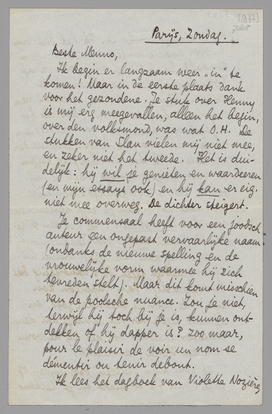 Parijs, Zondag.
Beste Menno,
Ik begin er langzaam weer „in" te
komen! Maar in de eerste plaats dank
voor het gezondene. Je stuk over Henny
is mij erg meegevallen, alleen het begin,
over den volksmond, was wat O.H. De
stukken van Slau vielen mij niet mee,
en zeker niet het tweede. Het is dui-
delijk: hij wil je genieten en waardeeren
(en mijn essays ook) en hij kan er eig.
niet mee overweg. De dichter steigert.
Je commensaal heeft voor een joodsch
auteur een ongepast vervaarlijke naam
(ondanks de nieuwe spelling en de
vrouwelijke vorm waarmee hij zich
tevreden stelt). Maar dit komt misschien
van de poolsche nuance. Zou je niet,
terwijl hij toch bij je is, kunnen ont-
dekken of hij dapper is? zoo maar,
pour le plaisir de voir un nom se
dementir ou tenir debout.
Ik lees het dagboek van Violette Nozière,